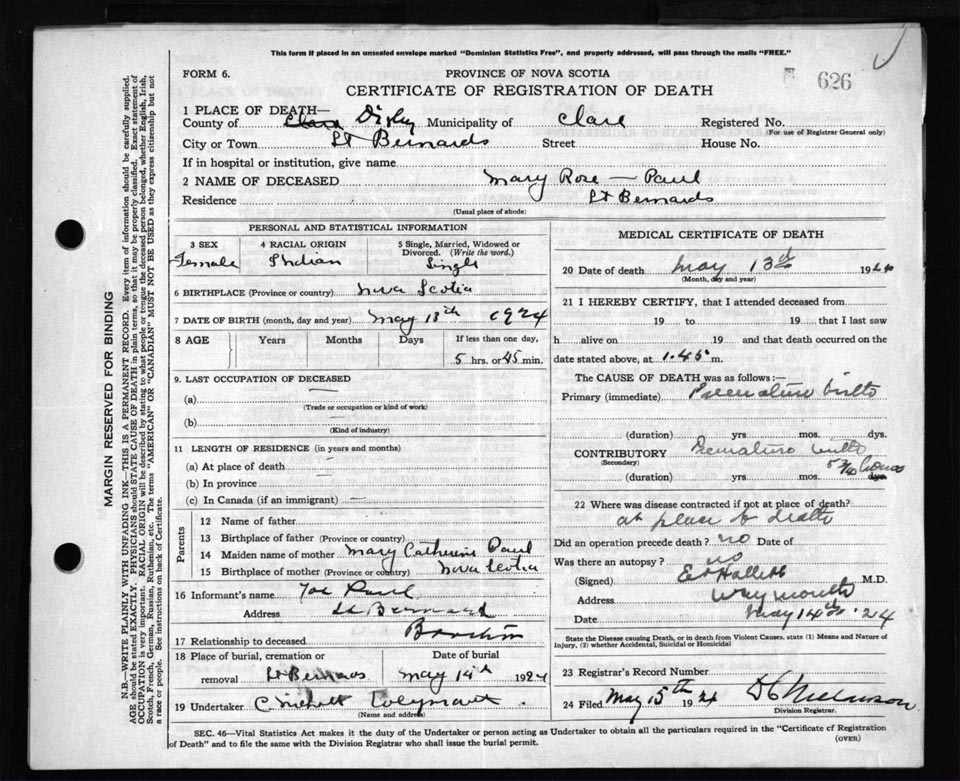 This form if placed in an unsealed envelope marked "Dominion Statistics Free", and properly addressed, will pass through the mails "FREE."
FORM 6.
PROVINCE OF NOVA SCOTIA
626
CERTIFICATE OF REGISTRATION OF DEATH
1 PLACE OF DEATH—
County of Digby Municipality of Clare Registered No.
(For use of Registrar General only)
City or Town St Bernards Street House No.
If in hospital or institution, give name
2 NAME OF DECEASED Mary Rose — Paul
Residence St Bernards
(Usual place of abode)
PERSONAL AND STATISTICAL INFORMATION
3 SEX 4 RACIAL ORIGIN 5 Single, Married, Widowed or Divorced. (Write the word.)
Female Indian Single
6 BIRTHPLACE (Province or country) Nova Scotia
7 DATE OF BIRTH (month, day and year) May 13th 1924
8 AGE Years Months Days If less than one day,
5 hrs. or 45 min.
9. LAST OCCUPATION OF DECEASED
(a) —
(Trade or occupation or kind of work)
(b)
(Kind of industry)
11 LENGTH OF RESIDENCE (in years and months)
(a) At place of death —
(b) In province
(c) In Canada (if an immigrant) —
Parents
12 Name of father
13 Birthplace of father (Province or country)
14 Maiden name of mother Mary Catherine Paul
15 Birthplace of mother (Province or country) Nova Scotia
16 Informant's name Joe Paul
Address St Bernard
17 Relationship to deceased
18 Place of burial, cremation or removal St Bernards
Date of burial
May 14th 1924
19 Undertaker
(Name and address)
MEDICAL CERTIFICATE OF DEATH
20 Date of death May 13th 1924
(Month, day and year)
21 I HEREBY CERTIFY, that I attended deceased from
19 to 19 that I last saw
h alive on 19 and that death occurred on the
date stated above, at 1.45 m.
The CAUSE OF DEATH was as follows:—
Primary (immediate) Premature birth
(duration) yrs mos. dys.
CONTRIBUTORY Premature birth
(Secondary)
(duration) yrs mos. dys.
22 Where was disease contracted if not at place of death?
at place of death
Did an operation precede death? no Date of
Was there an autopsy? no
(Signed) Hallett M.D.
Address Weymouth
Date May 14th '24
State the Disease causing Death, or in death from Violent Causes, state (1) Means and Nature of Injury, (2) whether Accidental, Suicidal or Homicidal
23 Registrar's Record Number
24 Filed May 15th 1924
Division Registrar.
SEC. 46—Vital Statistics Act makes it the duty of the Undertaker or person acting as Undertaker to obtain all the particulars required in the "Certificate of Registration of Death" and to file the same with the Division Registrar who shall issue the burial permit.
(OVER)
MARGIN RESERVED FOR BINDING
N.B.—WRITE PLAINLY WITH UNFADING INK—THIS IS A PERMANENT RECORD. Every item of information should be carefully supplied.
AGE should be stated EXACTLY. PHYSICIANS should STATE CAUSE OF DEATH in plain terms, so that it may be properly classified. Exact statement of
OCCUPATION is very important. RACIAL ORIGIN will be described by stating to what people or tongue the deceased person belonged, whether English, Irish,
Scotch, French, German, Russian, Ruthenian, etc. The terms "AMERICAN" OR "CANADIAN" MUST NOT BE USED as they express citizenship but not
a race or people. See instructions on back of Certificate.